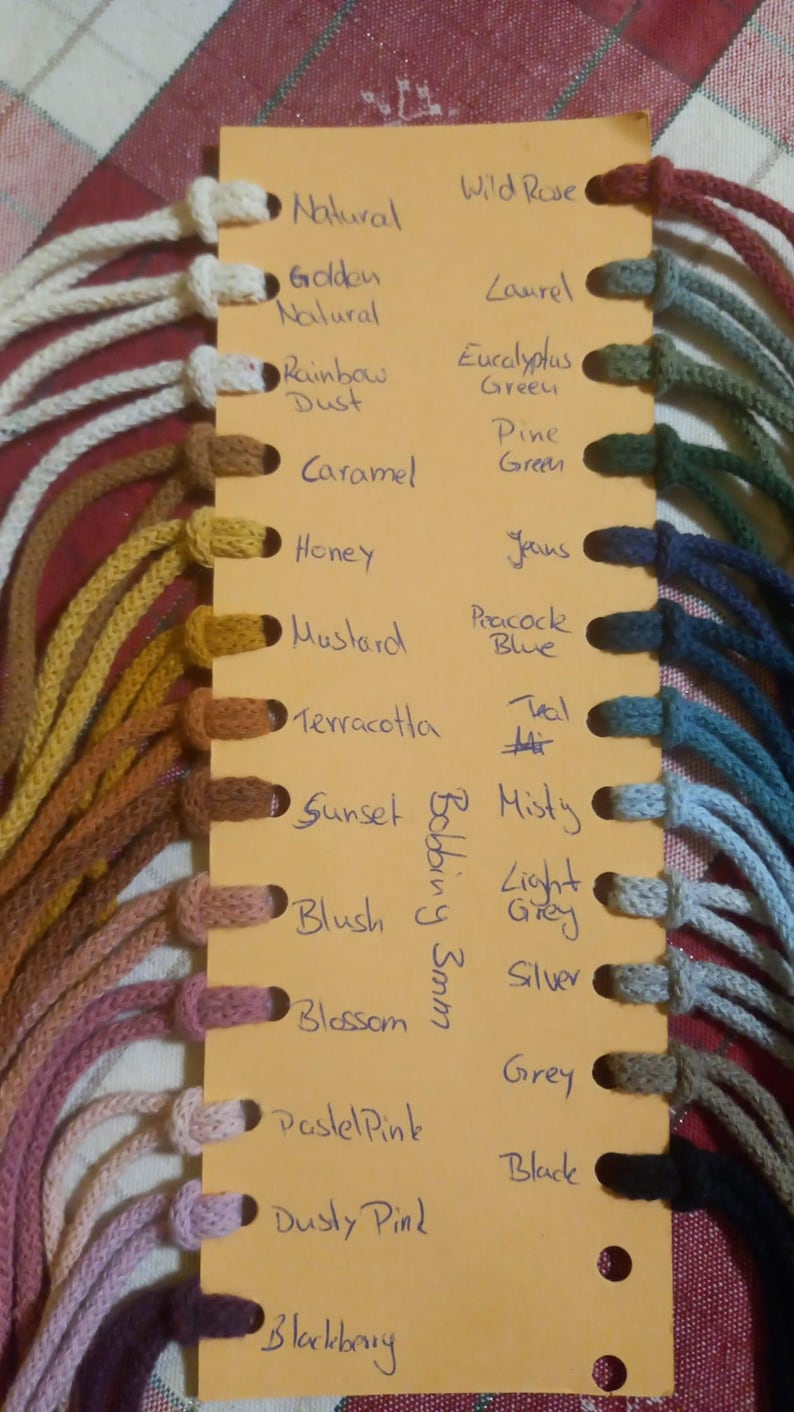 Natural
Golden
Natural
Rainbow
Dust
Caramel
Honey
Mustard
Terracotta
Sunset
Blush
Blossom
Pastel Pink
Dusty Pink
Blackberry
Bobbiny 3mm
Wild Rose
Laurel
Eucalyptus
Green
Pine
Green
Jeans
Peacock
Blue
Teal
Misty
Light
Grey
Silver
Grey
Black